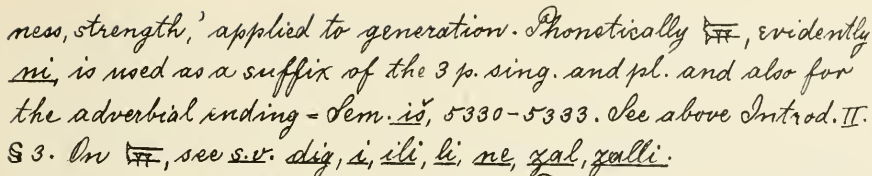 ness, strength,' applied to generation. Phonetically 𒉌, evidently
ni, is used as a suffix of the 3 p. sing. and pl. and also for
the adverbial ending = Sem. iš, 5330-5333. See above Introd. II.
§ 3. On 𒉌, see s.v. dig, i, ili, li, ne, zal, zalli.